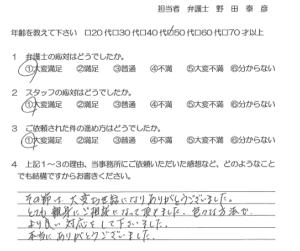 担当者 弁護士 野田 泰彦
年齢を教えて下さい □20代□30代□40代□50代□60代□70才以上
1 弁護士の応対はどうでしたか。
①大変満足 ②満足 ③普通 ④不満 ⑤大変不満 ⑥分からない
2 スタッフの応対はどうでしたか。
①大変満足 ②満足 ③普通 ④不満 ⑤大変不満 ⑥分からない
3 ご依頼された件の進め方はどうでしたか。
①大変満足 ②満足 ③普通 ④不満 ⑤大変不満 ⑥分からない
4 上記1~3の理由、当事務所にご依頼いただいた感想など、どのようなこと
でも結構ですからお書きください。
その節は、大変お世話になりありがとうございました。
とても親身にご相談になって頂きました。色々な方法で、
より良い対応をして下さいました。
本当にありがとうございました。